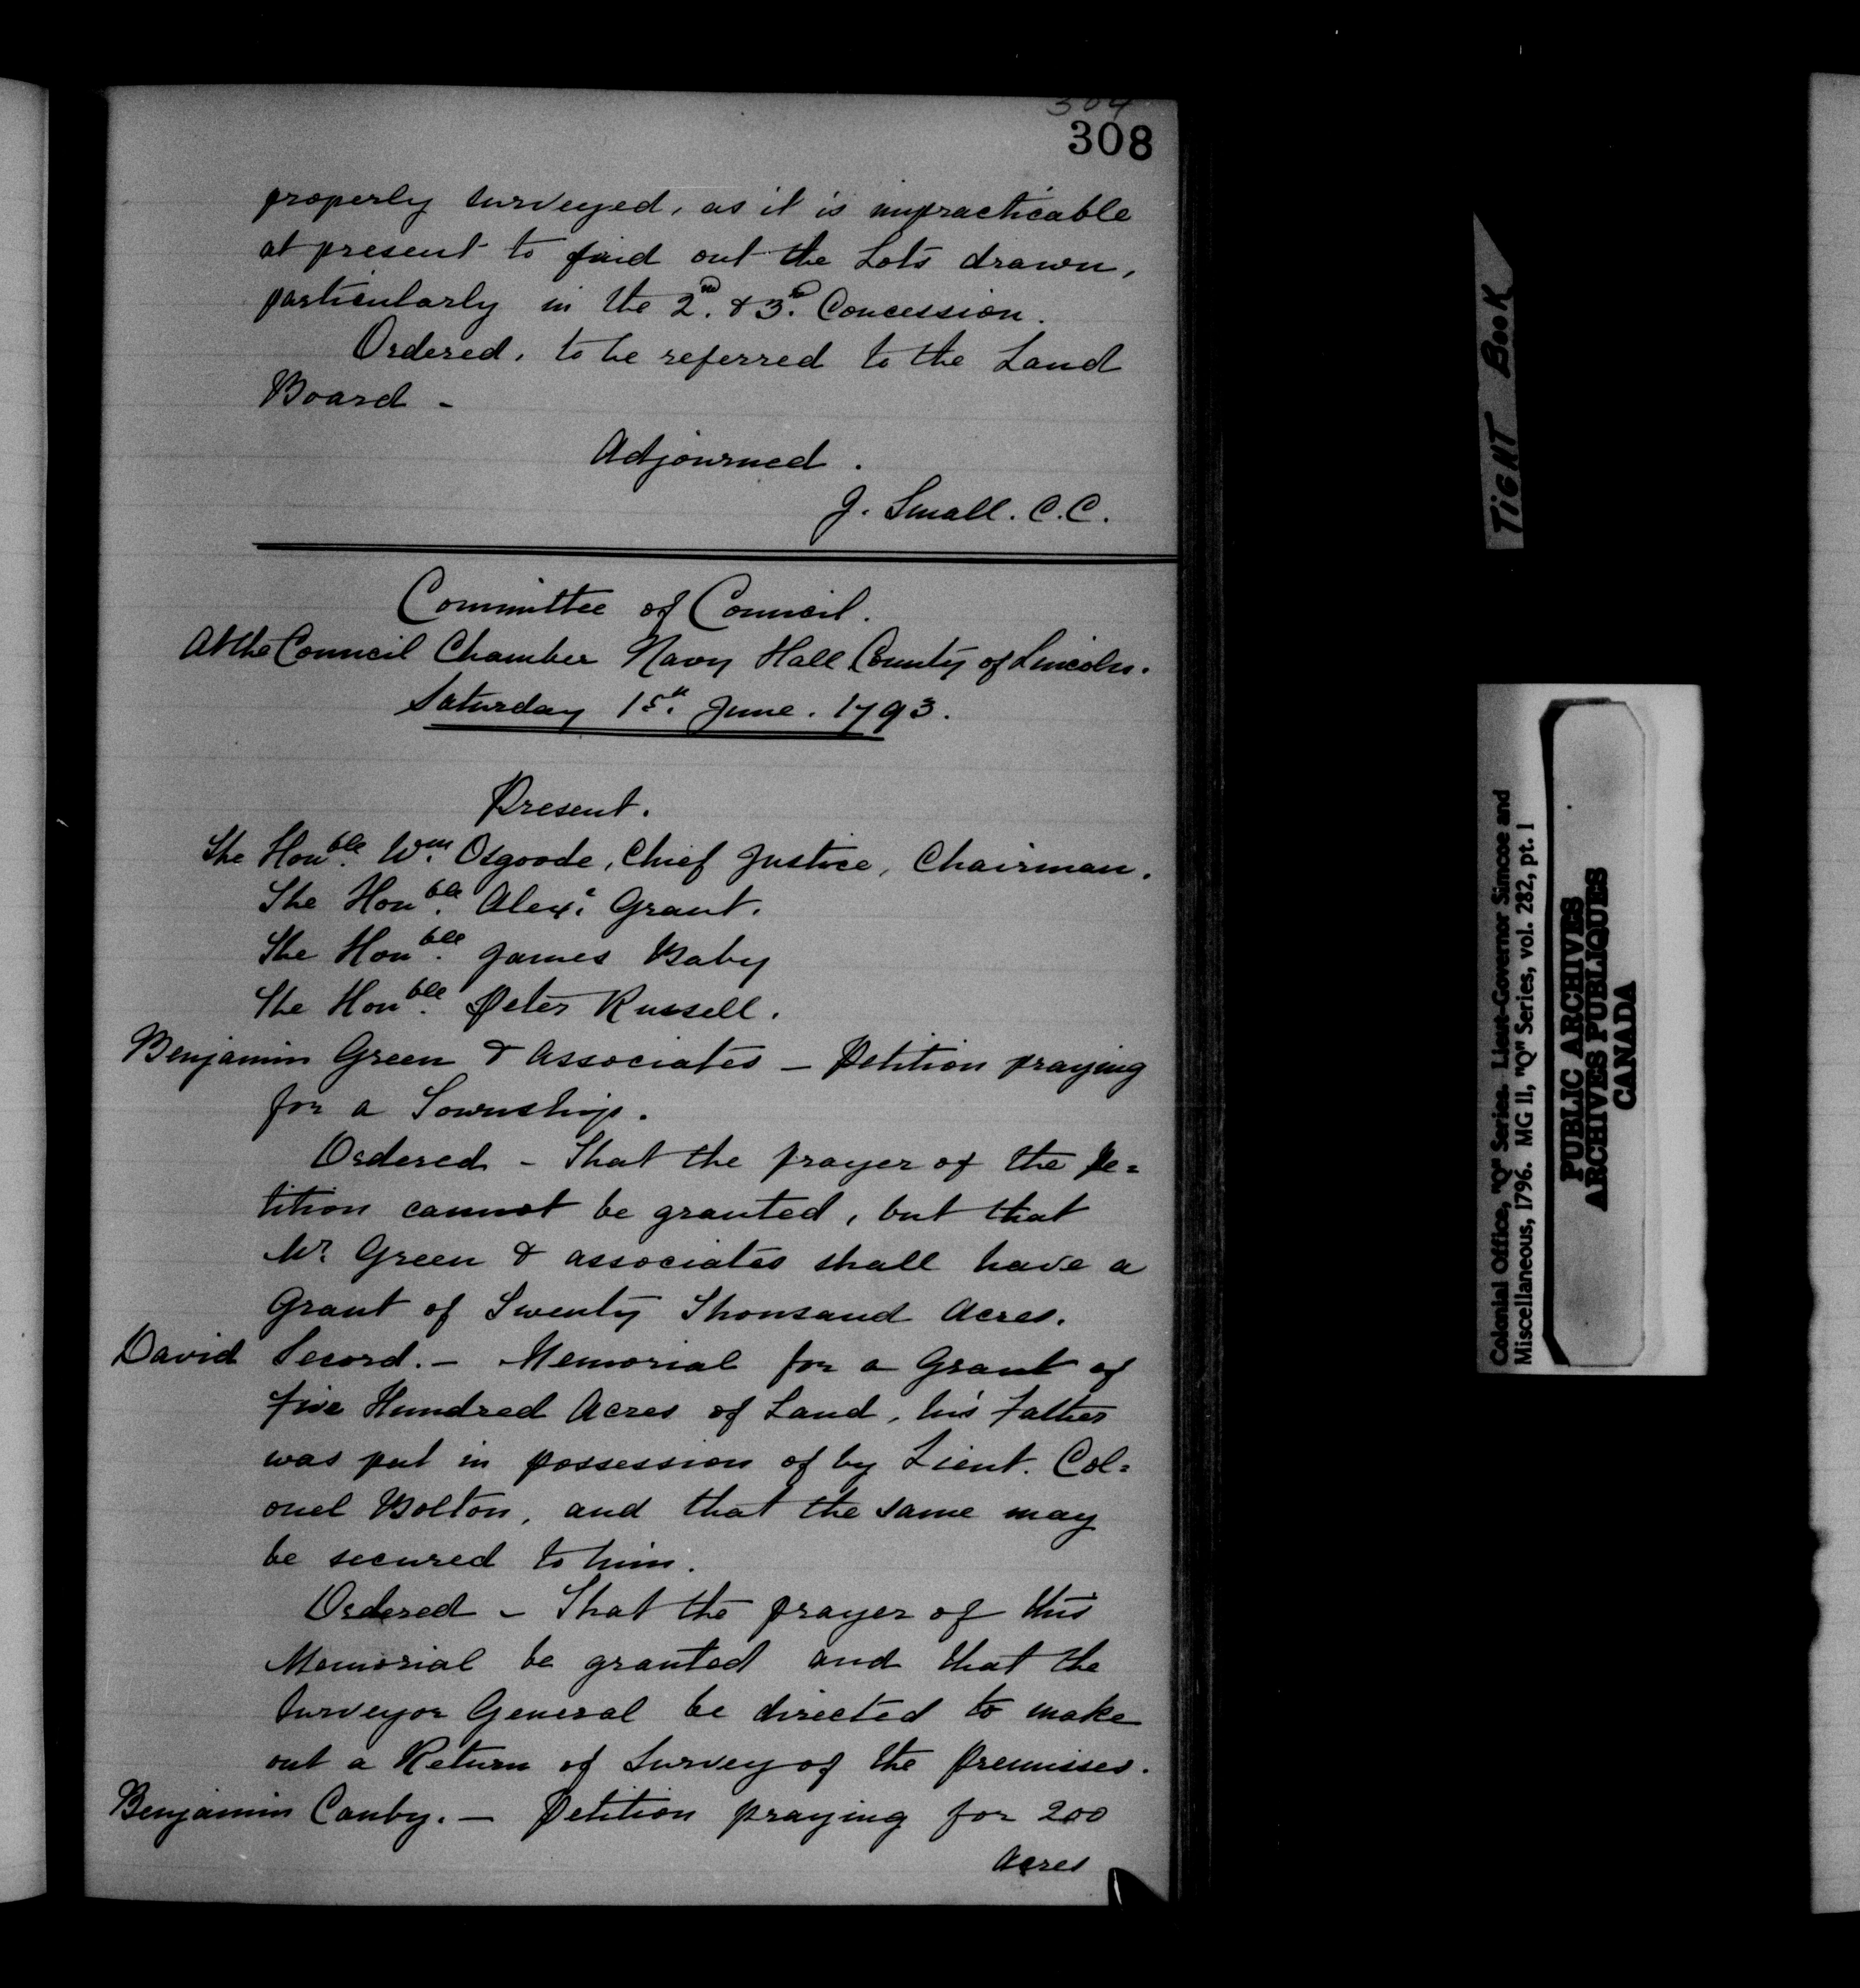 304
308
properly surveyed, as it is impracticable
at present to find out the Lots drawn,
particularly in the 2nd. & 3d. Concession.
Ordered, to be referred to the Land
Board -
Adjourned.
J. Small. C.C.
Committee of Council.
At the Council Chamber Navy Hall County of Lincoln.
Saturday 15th. June. 1793.
Present.
The Honble. Wm. Osgoode, Chief Justice, Chairman.
The Honble. Alexr. Grant.
The Honble. James Baby
The Honble. Peter Russell.
Benjamin Green & Associates - Petition praying
for a Township.
Ordered - That the prayer of the Pe=
tition cannot be granted, but that
Mr. Green & associates shall have a
Grant of Twenty Thousand Acres.
David Secord. - Memorial for a Grant of
five Hundred Acres of Land, his Father
was put in possession of by Lieut. Col=
onel Bolton, and that the same may
be secured to him.
Ordered - That the prayer of this
Memorial be granted and that the
Surveyor General be directed to make
out a Return of Survey of the premisses.
Benjamin Canby. - Petition praying for 200
Acres
TiGHT BooK
Colonial Office, "Q" Series. Lieut-Governor Simcoe and
Miscellaneous, 1796. MG 11, "Q" Series, vol. 282, pt. 1
PUBLIC ARCHIVES
ARCHIVES PUBLIQUES
CANADA